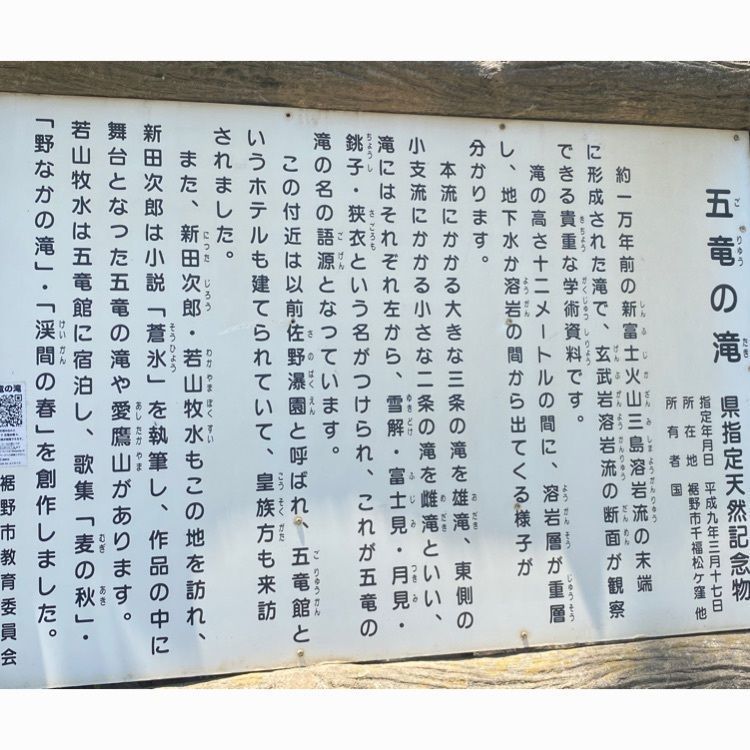 五竜の滝
県指定天然記念物
指定年月日 平成九年三月十七日
所在地 裾野市千福松ケ窪 他
所有者 国
約一万年前の新富士火山三島溶岩流の末端
に形成された滝で、玄武岩溶岩流の断面が観察
できる貴重な学術資料です。
滝の高さ十二メートルの間に、溶岩層が重層
し、地下水が溶岩の間から出てくる様子が
分かります。
本流にかかる大きな三条の滝を雄滝、東側の
小支流にかかる小さな二条の滝を雌滝といい、
滝にはそれぞれ左から、雪解・富士見・月見・
銚子・狭衣という名がつけられ、これが五竜の
滝の名の語源となっています。
この付近は以前佐野瀑園と呼ばれ、五竜館と
いうホテルも建てられていて、皇族方も来訪
されました。
また、新田次郎・若山牧水もこの地を訪れ、
新田次郎は小説「蒼氷」を執筆し、作品の中に
舞台となった五竜の滝や愛鷹山があります。
若山牧水は五竜館に宿泊し、歌集「麦の秋」・
「野なかの滝」・「渓間の春」を創作しました。
裾野市教育委員会